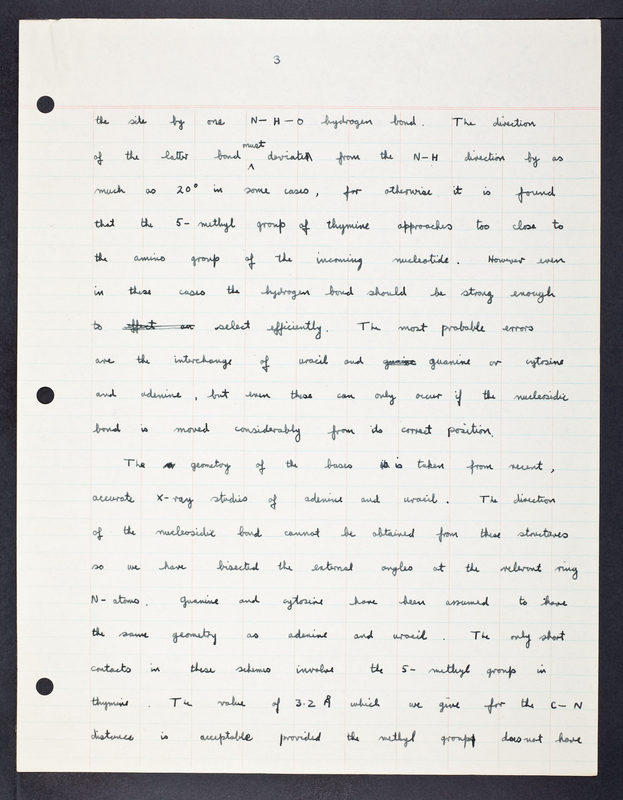 3
the site by one N-H-O hydrogen bond. The direction
of the latter bond must deviate from the N-H direction by as
much as 20° in some cases, for otherwise it is found
that the 5-methyl group of thymine approaches too close to
the amino group of the incoming nucleotide. However even
in these cases the hydrogen bond should be strong enough
to effect an select efficiently. The most probable errors
are the interchange of uracil and guanine or cytosine
and adenine, but even these can only occur if the nucleosidic
bond is moved considerably from its correct position.
The geometry of the bases is taken from recent,
accurate X-ray studies of adenine and uracil. The direction
of the nucleosidic bond cannot be obtained from these structures
so we have bisected the external angles at the relevant ring
N-atoms. Guanine and cytosine have been assumed to have
the same geometry as adenine and uracil. The only short
contacts in these schemes involve the 5-methyl group in
thymine. The value of 3.2 Å which we give for the C-N
distance is acceptable provided the methyl group does not have